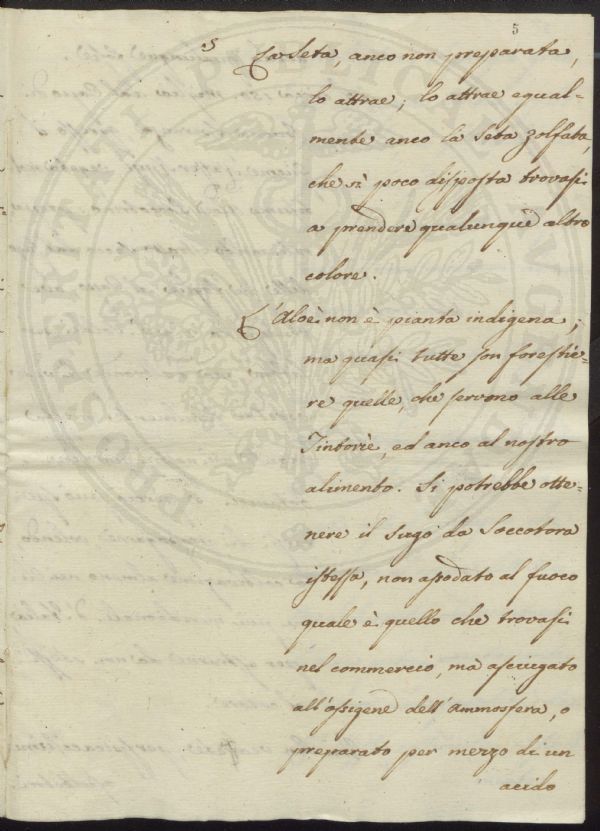 5
5
La Seta, anco non preparata,
lo attrae; lo attrae equal-
mente anco la Seta zolfata,
che sì poco disposta trovasi
a prendere qualunque altro
colore.
L'Aloè non è pianta indigena;
ma quasi tutte son forestie-
re quelle, che servono alle
Tintorie, ed anco al nostro
alimento. Si potrebbe otte-
nere il sugo da Soccotora
istessa, non assodato al fuoco
quale è quello che trovasi
nel commercio, ma asciugato
all'ossigene dell'ammosfera, o
preparato per mezzo di un
acido